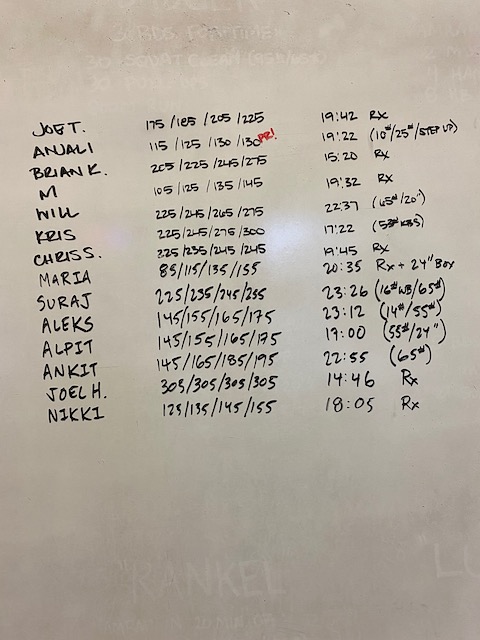 30 SQUAT CLEAN
JOE T. 175/185/205/225 19:42 Rx
ANJALI 115/125/130/130 PR! 19:22 (10#/25#/STEP UP)
BRIAN K. 205/225/245/275 15:20 Rx
M 105/125/135/145 19:32 Rx
WILL 225/245/265/275 22:37 (65#/20")
KRIS 225/245/275/300 17:22
CHRIS S. 225/235/245/245 19:45 Rx
MARIA 85/115/135/155 20:35 Rx + 24" BOX
SURAJ 225/235/245/255 23:26 (16# WB/65#)
ALEKS 145/155/165/175 23:12 (14#/55#)
ALPIT 145/155/165/175 17:00 (55#/24")
ANKIT 145/165/185/195 22:55 (65#)
JOEL H. 305/305/305/305 14:46 Rx
NIKKI 125/135/145/155 18:05 Rx
"RANKEL"
20 MIN